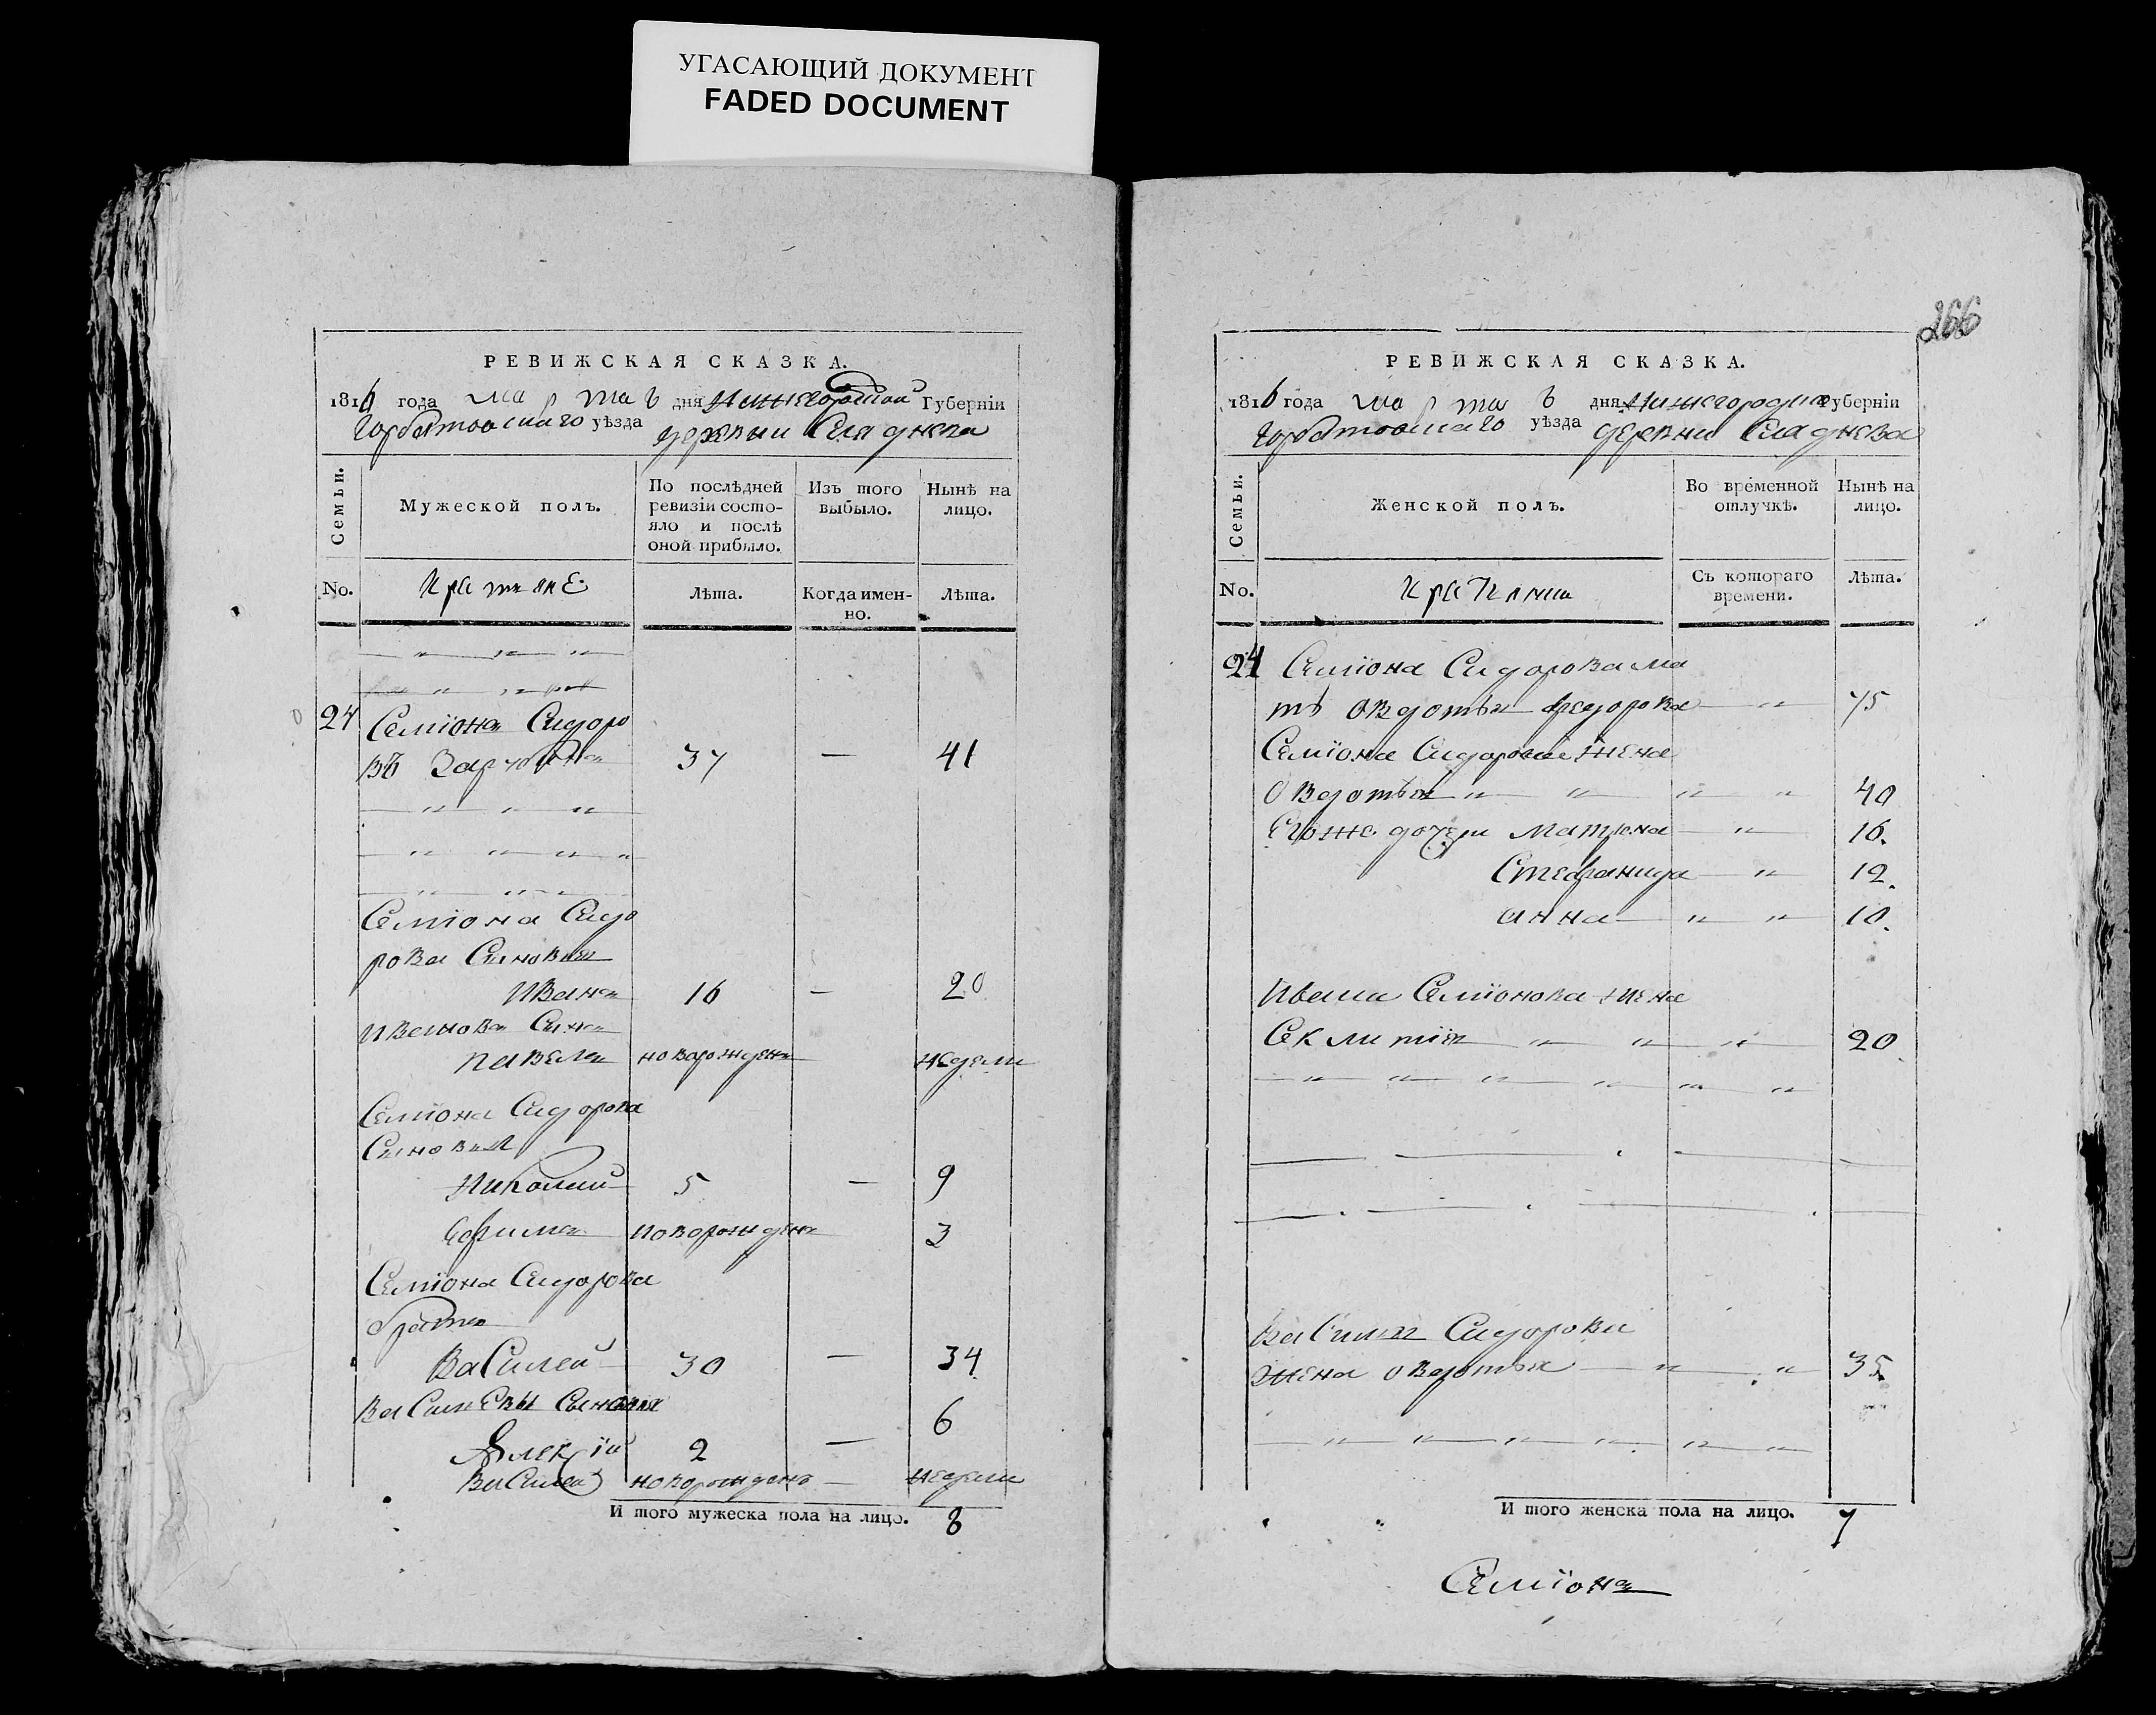 УГАСАЮЩИЙ ДОКУМЕНТ
FADED DOCUMENT
РЕВИЖСКАЯ СКАЗКА.
1816 года марта 6 дня Нижегородской Губерніи
Горбатовскаго уѣзда деревни Сляднева
Семьи.
Мужеской полъ.
По послѣдней ревизіи состояло и послѣ оной прибыло.
Изъ того выбыло.
Нынѣ на лицо.
No.
Крестьяне
Лѣта.
Когда именно.
Лѣта.
24 Семіонъ Сидоро
въ 37 — 41
Семіона Сидо
рова Сыновья
Иванъ 16 — 20
Ивановъ Сынъ
Павелъ новорожденъ недели
Семіона Сидорова
Сыновья
Николай 5 — 9
Ефимъ новорожденъ 3
Семіона Сидорова
братъ
Василей 30 — 34
Васильевы Сыновья
Алексій 2 — 6
Василей новорожденъ — недели
И того мужеска пола на лицо. 8
266
РЕВИЖСКАЯ СКАЗКА.
1816 года марта 6 дня Нижегородской Губерніи
Горбатовскаго уѣзда деревни Сляднева
Семьи.
Женской полъ.
Во временной отлучкѣ.
Нынѣ на лицо.
No.
Съ котораго времени.
Лѣта.
24 Семіона Сидорова ма
ть Овдотья Федорова 75
Семіона Сидорова жена
Овдотья 40
Егоже дочери Матрена 16.
Стефанида 12.
анна 10.
Ивана Семіонова жена
Секлитія 20
Василья Сидорова
жена Овдотья 35
И того женска пола на лицо. 7
Семіонъ